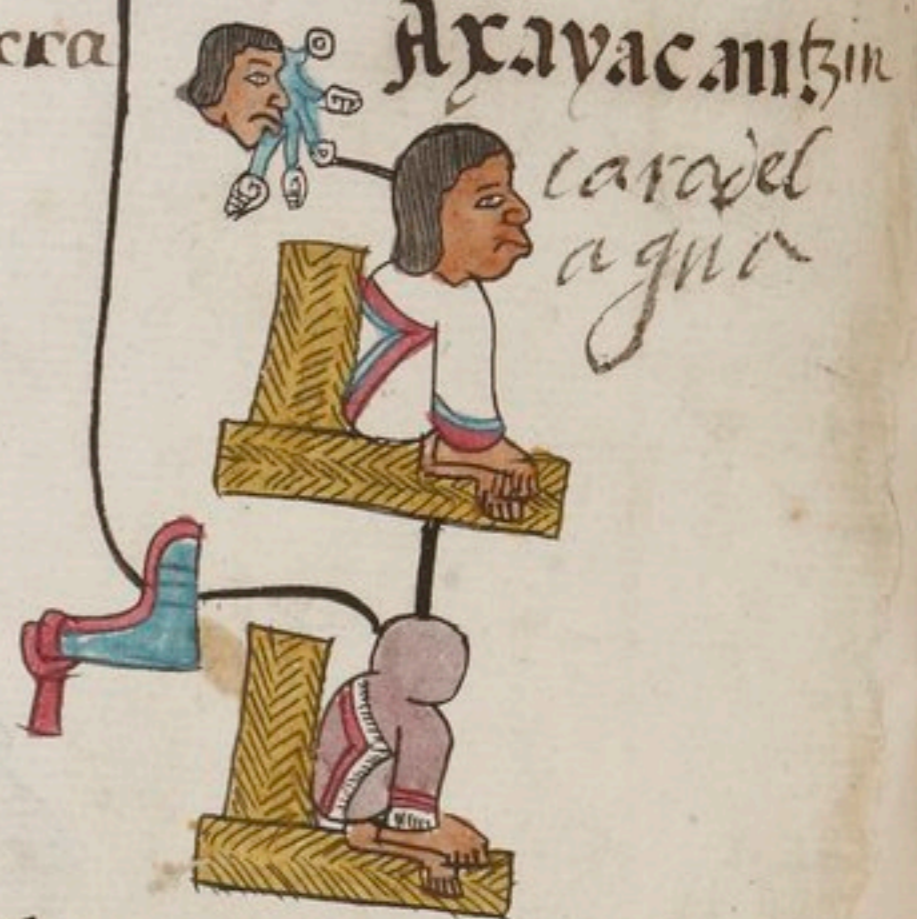 Axayacantzin
cara del
agua